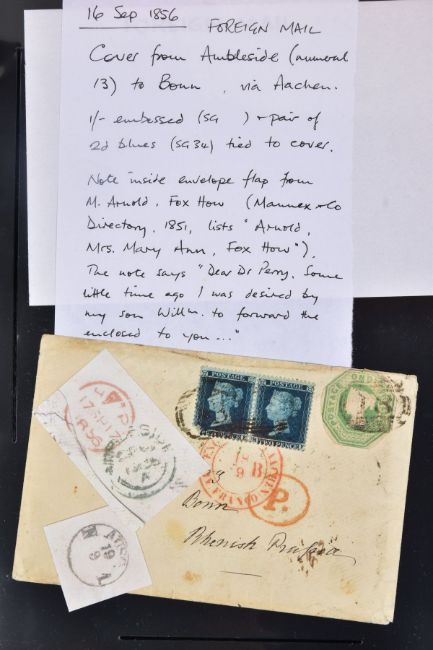 16 Sep 1856
FOREIGN MAIL
Cover from Ambleside (numeral
13) to Bonn, via Aachen.
1/- embossed (SG    ) + pair of
2d blues (SG34) tied to cover.
Note inside envelope flap from
M. Arnold, Fox How (Mannex & Co
Directory, 1851, lists "Arnold,
Mrs. Mary Ann, Fox How").
The note says "Dear Dr Perry. Some
little time ago I was desired by
my son Willm. to forward the
enclosed to you..."
POSTAGE POSTAGE
TWO PENCE
AACHEN
B
P.
Bonn
Rhenish Prussia
19
9